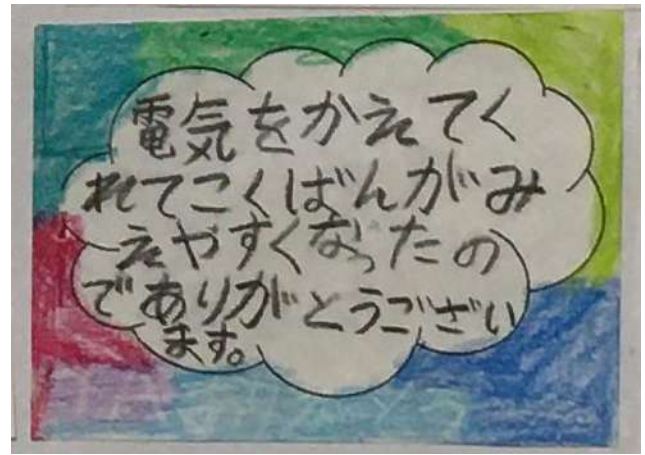 電気をかえてく
れてこくばんがみ
えやすくなったの
でありがとうござい
ます。